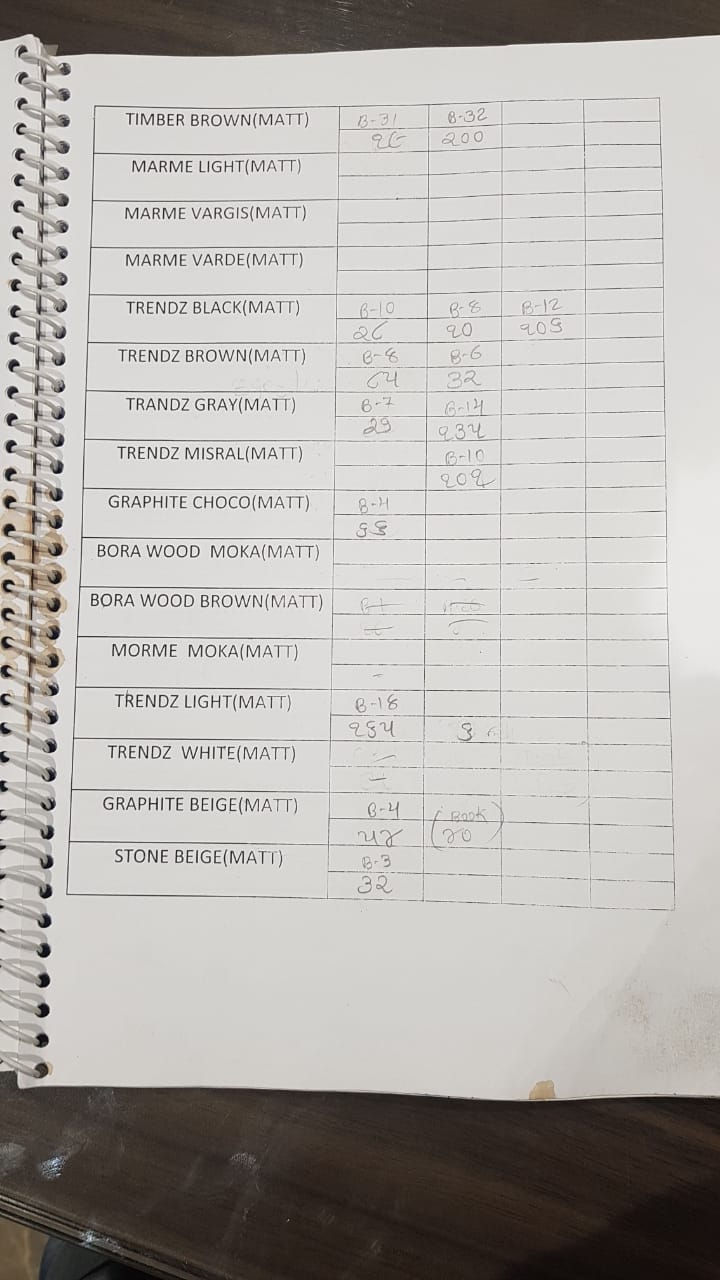 TIMBER BROWN(MATT) B-31 B-32
26 200
MARME LIGHT(MATT)
MARME VARGIS(MATT)
MARME VARDE(MATT)
TRENDZ BLACK(MATT) B-10 B-8 B-12
26 20 209
TRENDZ BROWN(MATT) B-8 B-6
64 32
TRANDZ GRAY(MATT) B-7 B-14
29 234
TRENDZ MISRAL(MATT) B-10
202
GRAPHITE CHOCO(MATT) B-4
BORA WOOD MOKA(MATT)
BORA WOOD BROWN(MATT)
MORME MOKA(MATT)
TRENDZ LIGHT(MATT) B-18
TRENDZ WHITE(MATT)
GRAPHITE BEIGE(MATT) B-4 (BOOK
20)
STONE BEIGE(MATT) B-3
32